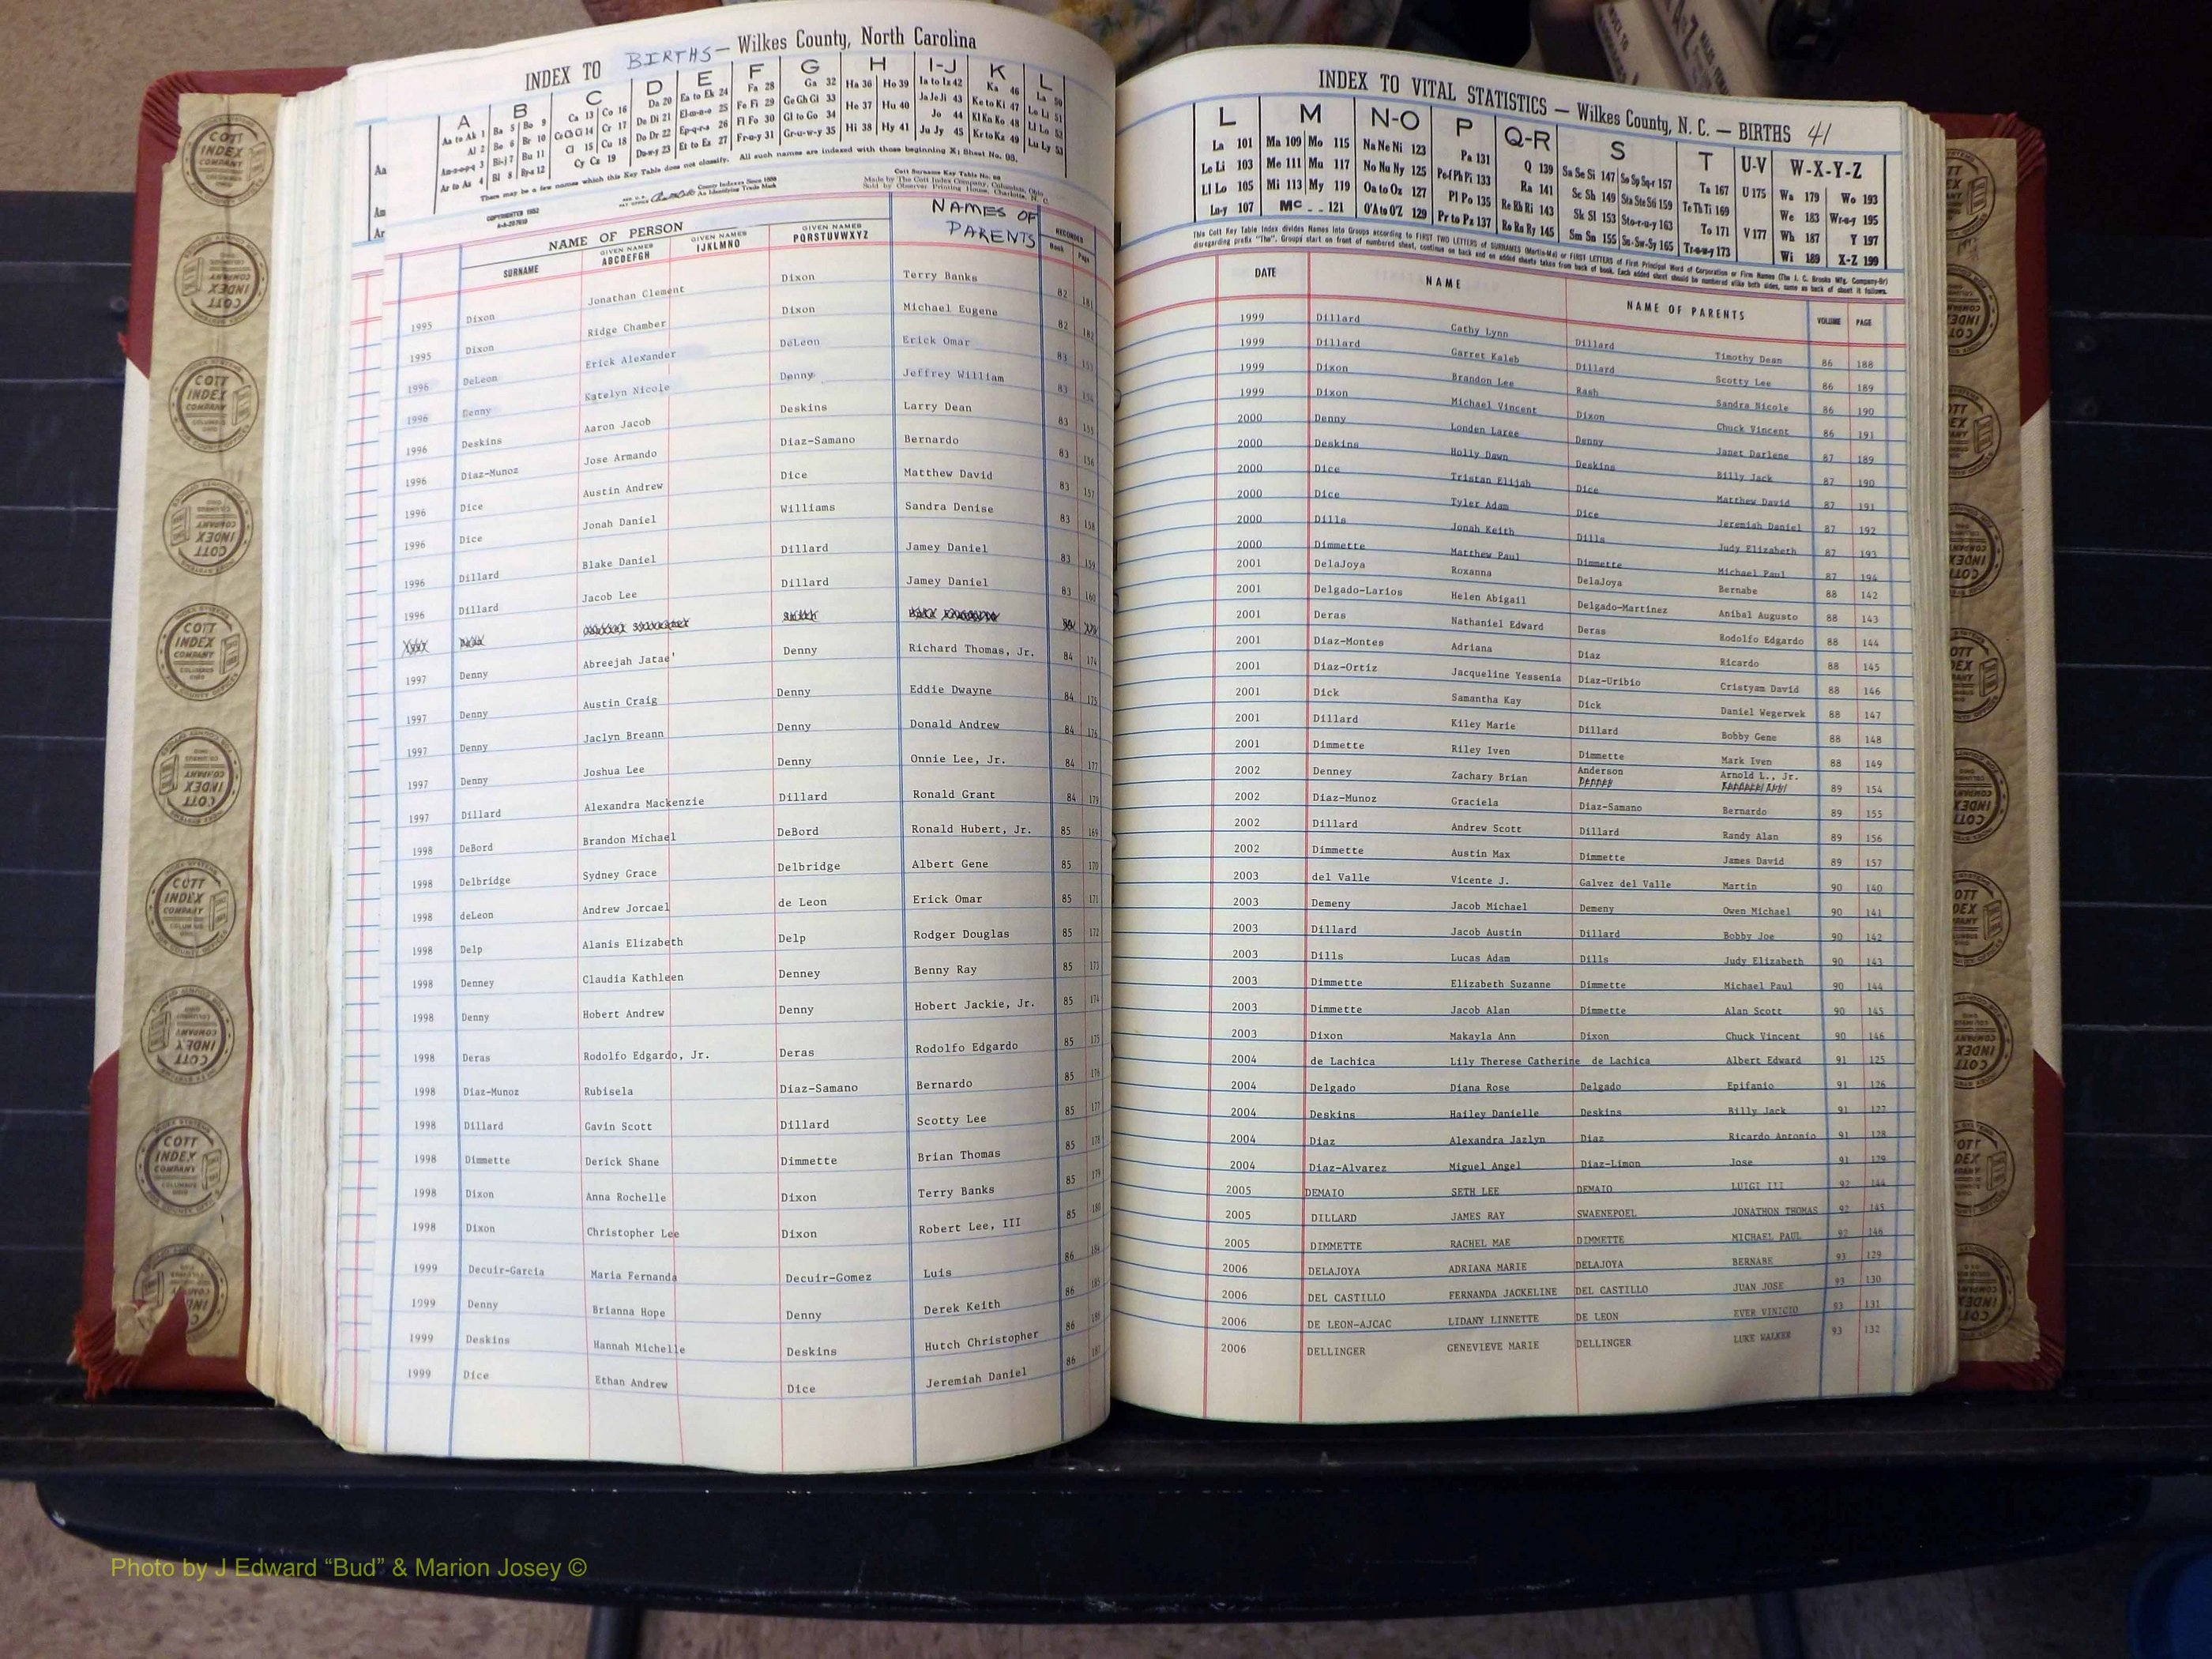 INDEX TO BIRTHS — Wilkes County, North Carolina
A B C D E F G H I-J K L
Aa to Ak 1 Ba 5 Bo 9 Ca 13 Co 16 Da 20 Ea to Ek 24 Fa 28 Ga 32 Ha 36 Ho 39 Ia to Iz 42 Ka 46 La 50
Al 2 Be 6 Br 10 Ce Ch Ci 14 Cr 17 De Di 21 El-m-n-o 25 Fe Fi 29 Ge Gh Gi 33 He 37 Hu 40 Ja Je Ji 43 Ke to Ki 47 Le Li 51
Am-n-o-p-q 3 Bi-j 7 Bu 11 Cl 15 Cu 18 Do Dr 22 Ep-q-r-s 26 Fl Fo 30 Gl to Go 34 Hi 38 Hy 41 Jo 44 Kl Kn Ko 48 Ll Lo 52
Ar to Az 4 Bl 8 By-z 12 Cy Cz 19 Du-w-y 23 Et to Ez 27 Fr-u-y 31 Gr-u-w-y 35 Ju Jy 45 Kr to Kz 49 Lu Ly 53
There may be a few names which this Key Table does not classify. All such names are indexed with those beginning X; Sheet No. 98.
COPYRIGHTED 1952
County Indexes Since 1888
An Identifying Trade Mark
Cott Surname Key Table No.
Made by The Cott Index Company, Columbus, Ohio
Sold by Observer Printing House, Charlotte, N. C.
Aa
Am
Ar
NAME OF PERSON NAMES OF PARENTS RECORDED
SURNAME GIVEN NAMES ABCDEFGH GIVEN NAMES IJKLMNO GIVEN NAMES PQRSTUVWXYZ Book Page
1995 Dixon Jonathan Clement Dixon Terry Banks 82 181
1995 Dixon Ridge Chamber Dixon Michael Eugene 82 182
1996 DeLeon Erick Alexander DeLeon Erick Omar 83 153
1996 Denny Katelyn Nicole Denny Jeffrey William 83 154
1996 Deskins Aaron Jacob Deskins Larry Dean 83 155
1996 Diaz-Munoz Jose Armando Diaz-Samano Bernardo 83 156
1996 Dice Austin Andrew Dice Matthew David 83 157
1996 Dice Jonah Daniel Williams Sandra Denise 83 158
1996 Dillard Blake Daniel Dillard Jamey Daniel 83 159
1996 Dillard Jacob Lee Dillard Jamey Daniel 83 160
1997 Denny Abreejah Jatae' Denny Richard Thomas, Jr. 84 174
1997 Denny Austin Craig Denny Eddie Dwayne 84 175
1997 Denny Jaclyn Breann Denny Donald Andrew 84 176
1997 Denny Joshua Lee Denny Onnie Lee, Jr. 84 177
1997 Dillard Alexandra Mackenzie Dillard Ronald Grant 84 179
1998 DeBord Brandon Michael DeBord Ronald Hubert, Jr. 85 169
1998 Delbridge Sydney Grace Delbridge Albert Gene 85 170
1998 deLeon Andrew Jorcael de Leon Erick Omar 85 171
1998 Delp Alanis Elizabeth Delp Rodger Douglas 85 172
1998 Denney Claudia Kathleen Denney Benny Ray 85 173
1998 Denny Hobert Andrew Denny Hobert Jackie, Jr. 85 174
1998 Deras Rodolfo Edgardo, Jr. Deras Rodolfo Edgardo 85 175
1998 Diaz-Munoz Rubisela Diaz-Samano Bernardo 85 176
1998 Dillard Gavin Scott Dillard Scotty Lee 85 177
1998 Dimmette Derick Shane Dimmette Brian Thomas 85 178
1998 Dixon Anna Rochelle Dixon Terry Banks 85 179
1998 Dixon Christopher Lee Dixon Robert Lee, III 85 180
1999 Decuir-Garcia Maria Fernanda Decuir-Gomez Luis 86 184
1999 Denny Brianna Hope Denny Derek Keith 86 185
1999 Deskins Hannah Michelle Deskins Hutch Christopher 86 186
1999 Dice Ethan Andrew Dice Jeremiah Daniel 86 187
INDEX TO VITAL STATISTICS — Wilkes County, N. C. — BIRTHS 41
L M N-O P Q-R S T U-V W-X-Y-Z
La 101 Ma 109 Mo 115 Na Ne Ni 123 Pa 131 Q 139 Sa Se Si 147 So Sp Sq-r 157 Ta 167 U 175 Wa 179 Wo 193
Le Li 103 Me 111 Mu 117 No Nu Ny 125 Pe-f Ph Pi 133 Ra 141 Sc Sh 149 Sta Ste Sti 159 Te Th Ti 169 We 183 Wr-u-y 195
Ll Lo 105 Mi 113 My 119 Oa to Oz 127 Pl Po 135 Re Rh Ri 143 Sk Sl 153 Sto-r-u-y 163 To 171 V 177 Wh 187 Y 197
Lu-y 107 Mc 121 O'A to O'Z 129 Pr to Pz 137 Ro Ru Ry 145 Sm Sn 155 Su-Sw-Sy 165 Tr-u-w-y 173 Wi 189 X-Z 199
This Cott Key Table Index divides Names into Groups according to FIRST TWO LETTERS of SURNAMES (Martin-Ma) or FIRST LETTERS of First Principal Word of Corporation or Firm Names (The J. C. Brooks Mfg. Company-Br)
disregarding prefix "The". Groups start on front of numbered sheet, continue on back and on added sheets taken from back of book. Each added sheet should be numbered alike both sides, same as back of sheet it follows.
DATE NAME NAME OF PARENTS VOLUME PAGE
1999 Dillard Cathy Lynn Dillard Timothy Dean 86 188
1999 Dillard Garret Kaleb Dillard Scotty Lee 86 189
1999 Dixon Brandon Lee Rash Sandra Nicole 86 190
1999 Dixon Michael Vincent Dixon Chuck Vincent 86 191
2000 Denny Londen Laree Denny Janet Darlene 87 189
2000 Deskins Holly Dawn Deskins Billy Jack 87 190
2000 Dice Tristan Elijah Dice Matthew David 87 191
2000 Dice Tyler Adam Dice Jeremiah Daniel 87 192
2000 Dills Jonah Keith Dills Judy Elizabeth 87 193
2000 Dimmette Matthew Paul Dimmette Michael Paul 87 194
2001 DelaJoya Roxanna DelaJoya Bernabe 88 142
2001 Delgado-Larios Helen Abigail Delgado-Martinez Anibal Augusto 88 143
2001 Deras Nathaniel Edward Deras Rodolfo Edgardo 88 144
2001 Diaz-Montes Adriana Diaz Ricardo 88 145
2001 Diaz-Ortiz Jacqueline Yessenia Diaz-Uribio Cristyam David 88 146
2001 Dick Samantha Kay Dick Daniel Wegerwek 88 147
2001 Dillard Kiley Marie Dillard Bobby Gene 88 148
2001 Dimmette Riley Iven Dimmette Mark Iven 88 149
2002 Denney Zachary Brian Anderson Arnold L., Jr. 89 154
2002 Diaz-Munoz Graciela Diaz-Samano Bernardo 89 155
2002 Dillard Andrew Scott Dillard Randy Alan 89 156
2002 Dimmette Austin Max Dimmette James David 89 157
2003 del Valle Vicente J. Galvez del Valle Martin 90 140
2003 Demeny Jacob Michael Demeny Owen Michael 90 141
2003 Dillard Jacob Austin Dillard Bobby Joe 90 142
2003 Dills Lucas Adam Dills Judy Elizabeth 90 143
2003 Dimmette Elizabeth Suzanne Dimmette Michael Paul 90 144
2003 Dimmette Jacob Alan Dimmette Alan Scott 90 145
2003 Dixon Makayla Ann Dixon Chuck Vincent 90 146
2004 de Lachica Lily Therese Catherine de Lachica Albert Edward 91 125
2004 Delgado Diana Rose Delgado Epifanio 91 126
2004 Deskins Hailey Danielle Deskins Billy Jack 91 127
2004 Diaz Alexandra Jazlyn Diaz Ricardo Antonio 91 128
2004 Diaz-Alvarez Miguel Angel Diaz-Limon Jose 91 129
2005 DEMAIO SETH LEE DEMAIO LUIGI III 92 144
2005 DILLARD JAMES RAY SWAENEPOEL JONATHON THOMAS 92 145
2005 DIMMETTE RACHEL MAE DIMMETTE MICHAEL PAUL 92 146
2006 DELAJOYA ADRIANA MARIE DELAJOYA BERNABE 93 129
2006 DEL CASTILLO FERNANDA JACKELINE DEL CASTILLO JUAN JOSE 93 130
2006 DE LEON-AJCAC LIDANY LINNETTE DE LEON EVER VINICIO 93 131
2006 DELLINGER GENEVIEVE MARIE DELLINGER LUKE WALKER 93 132
COTT INDEX COMPANY
Photo by J Edward “Bud” & Marion Josey ©